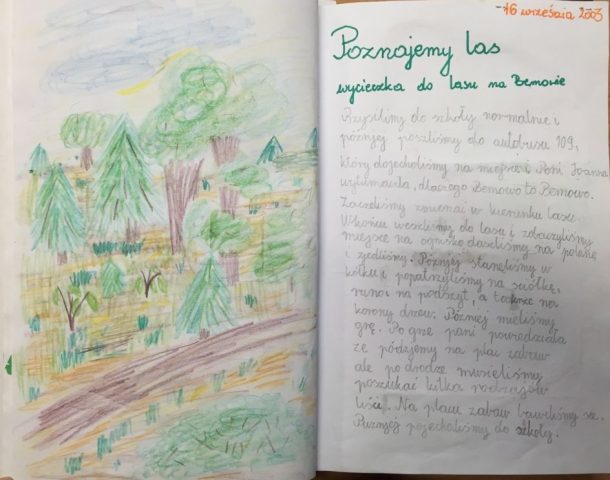 16 września 2003
Poznajemy las
wycieczka do lasu na Bemowie
Przyszliśmy do szkoły normalnie i
później poszliśmy do autobusu 109,
który dojechaliśmy na miejsce i Pani Joanna
wytłumaczła, dlaczego Bemowo to Bemowo.
Zaczeliśmy zmierzać w kierunku lasu.
Wkońcu weszliśmy do lasu i zobaczyliśmy
miejsce na ognisko doszliśmy na polanę
i zjedliśmy. Później staneliśmy w
kółku i popatrzyliśmy na ściółkę,
runo i na podszyt, a także na
korony drzew. Później mieliśmy
grę. Po grze pani powiedziała
że pójdziemy na plac zabaw
ale po drodze musieliśmy
poszukać kilka rodzajów
liści. Na placu zabaw bawiliśmy się.
Puzniej pojechaliśmy do szkoły.